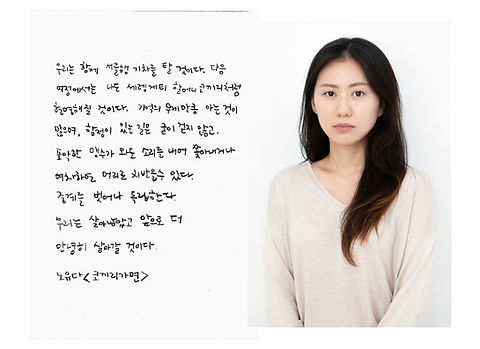 우리는 함께 서울행 기차를 탈 것이다. 다음
역정에서는 나도 세렝게티 할머니 코끼리처럼
현명해질 것이다. 가죽의 무게만큼 아는 것이
많으며, 함정이 있는 길은 굳이 걷지 않고.
포악한 맹수가 와도 소리를 내어 쫓아내거나
여차하면 머리로 치받을수 있다.
굴레를 벗어나 독립한다.
우리는 살아남았고 앞으로 더
안녕히 살아갈 것이다.
노유다<코끼리가면>